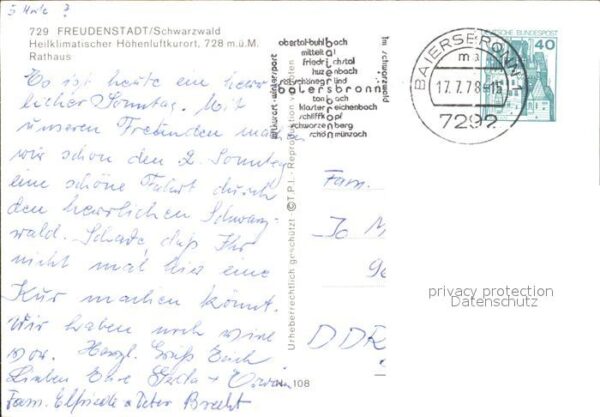 5 Mark ?
729 FREUDENSTADT/Schwarzwald
Heilklimatischer Höhenluftkurort, 728 m.ü.M.
Rathaus
Es ist heute ein herr-
licher Sonntag. Mit
unseren Freunden machen
wir schon den 2. Sonntag
eine schöne Fahrt durch
den herrlichen Schwarz-
wald. Schade, daß Ihr
nicht mal hier eine
Kur machen könnt.
Wir haben noch viel
vor. Herzl. Grüße Euch
Lieben Eure
Fam. Elfriede u. Peter Brecht
Urheberrechtlich geschützt · © T.P.I. - Reproduktion verboten
108
obertal-buhlbach
mitteltal
friedrichstal
huzenbach
röt-schönegründ
baiersbronn
tonbach
kloster reichenbach
schliffkopf
schwarzenberg
schönmünzach
im schwarzwald
BAIERSBRONN 1
17.7.78-15
7292
DEUTSCHE BUNDESPOST
40
Fam.
DDR
privacy protection
Datenschutz